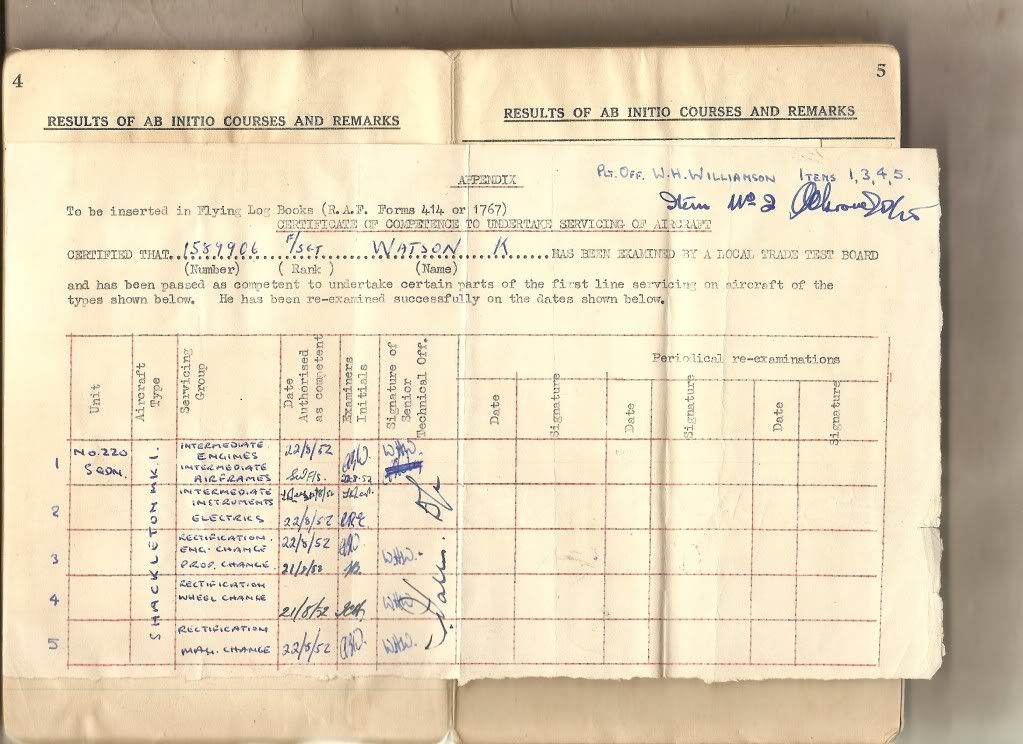 4
5
RESULTS OF AB INITIO COURSES AND REMARKS
RESULTS OF AB INITIO COURSES AND REMARKS
APPENDIX
PLT. OFF. W.H. WILLIAMSON ITEMS 1,3,4,5.
Item No 2
To be inserted in Flying Log Books (R.A.F. Forms 414 or 1767)
CERTIFICATE OF COMPETENCE TO UNDERTAKE SERVICING OF AIRCRAFT
CERTIFIED THAT 1589906 F/SGT WATSON K HAS BEEN EXAMINED BY A LOCAL TRADE TEST BOARD
(Number) ( Rank ) (Name)
and has been passed as competent to undertake certain parts of the first line servicing on aircraft of the
types shown below. He has been re-examined successfully on the dates shown below.
Periodical re-examinations
Unit
Aircraft Type
Servicing Group
Date Authorised as competent
Examiners Initials
Signature of Senior Technical Off.
Date
Signature
Date
Signature
Date
Signature
SHACKLETON MK.1.
1 No.220 SQDN. INTERMEDIATE ENGINES 22/8/52 WHW.
INTERMEDIATE AIRFRAMES 22.8.52
2 INTERMEDIATE INSTRUMENTS
ELECTRICS 22/8/52
3 RECTIFICATION. ENG. CHANGE 22/8/52 WHW.
PROP. CHANGE 21/8/52
4 RECTIFICATION WHEEL CHANGE 21/8/52 WHW
5 RECTIFICATION MAG. CHANGE 22/8/52 WHW.